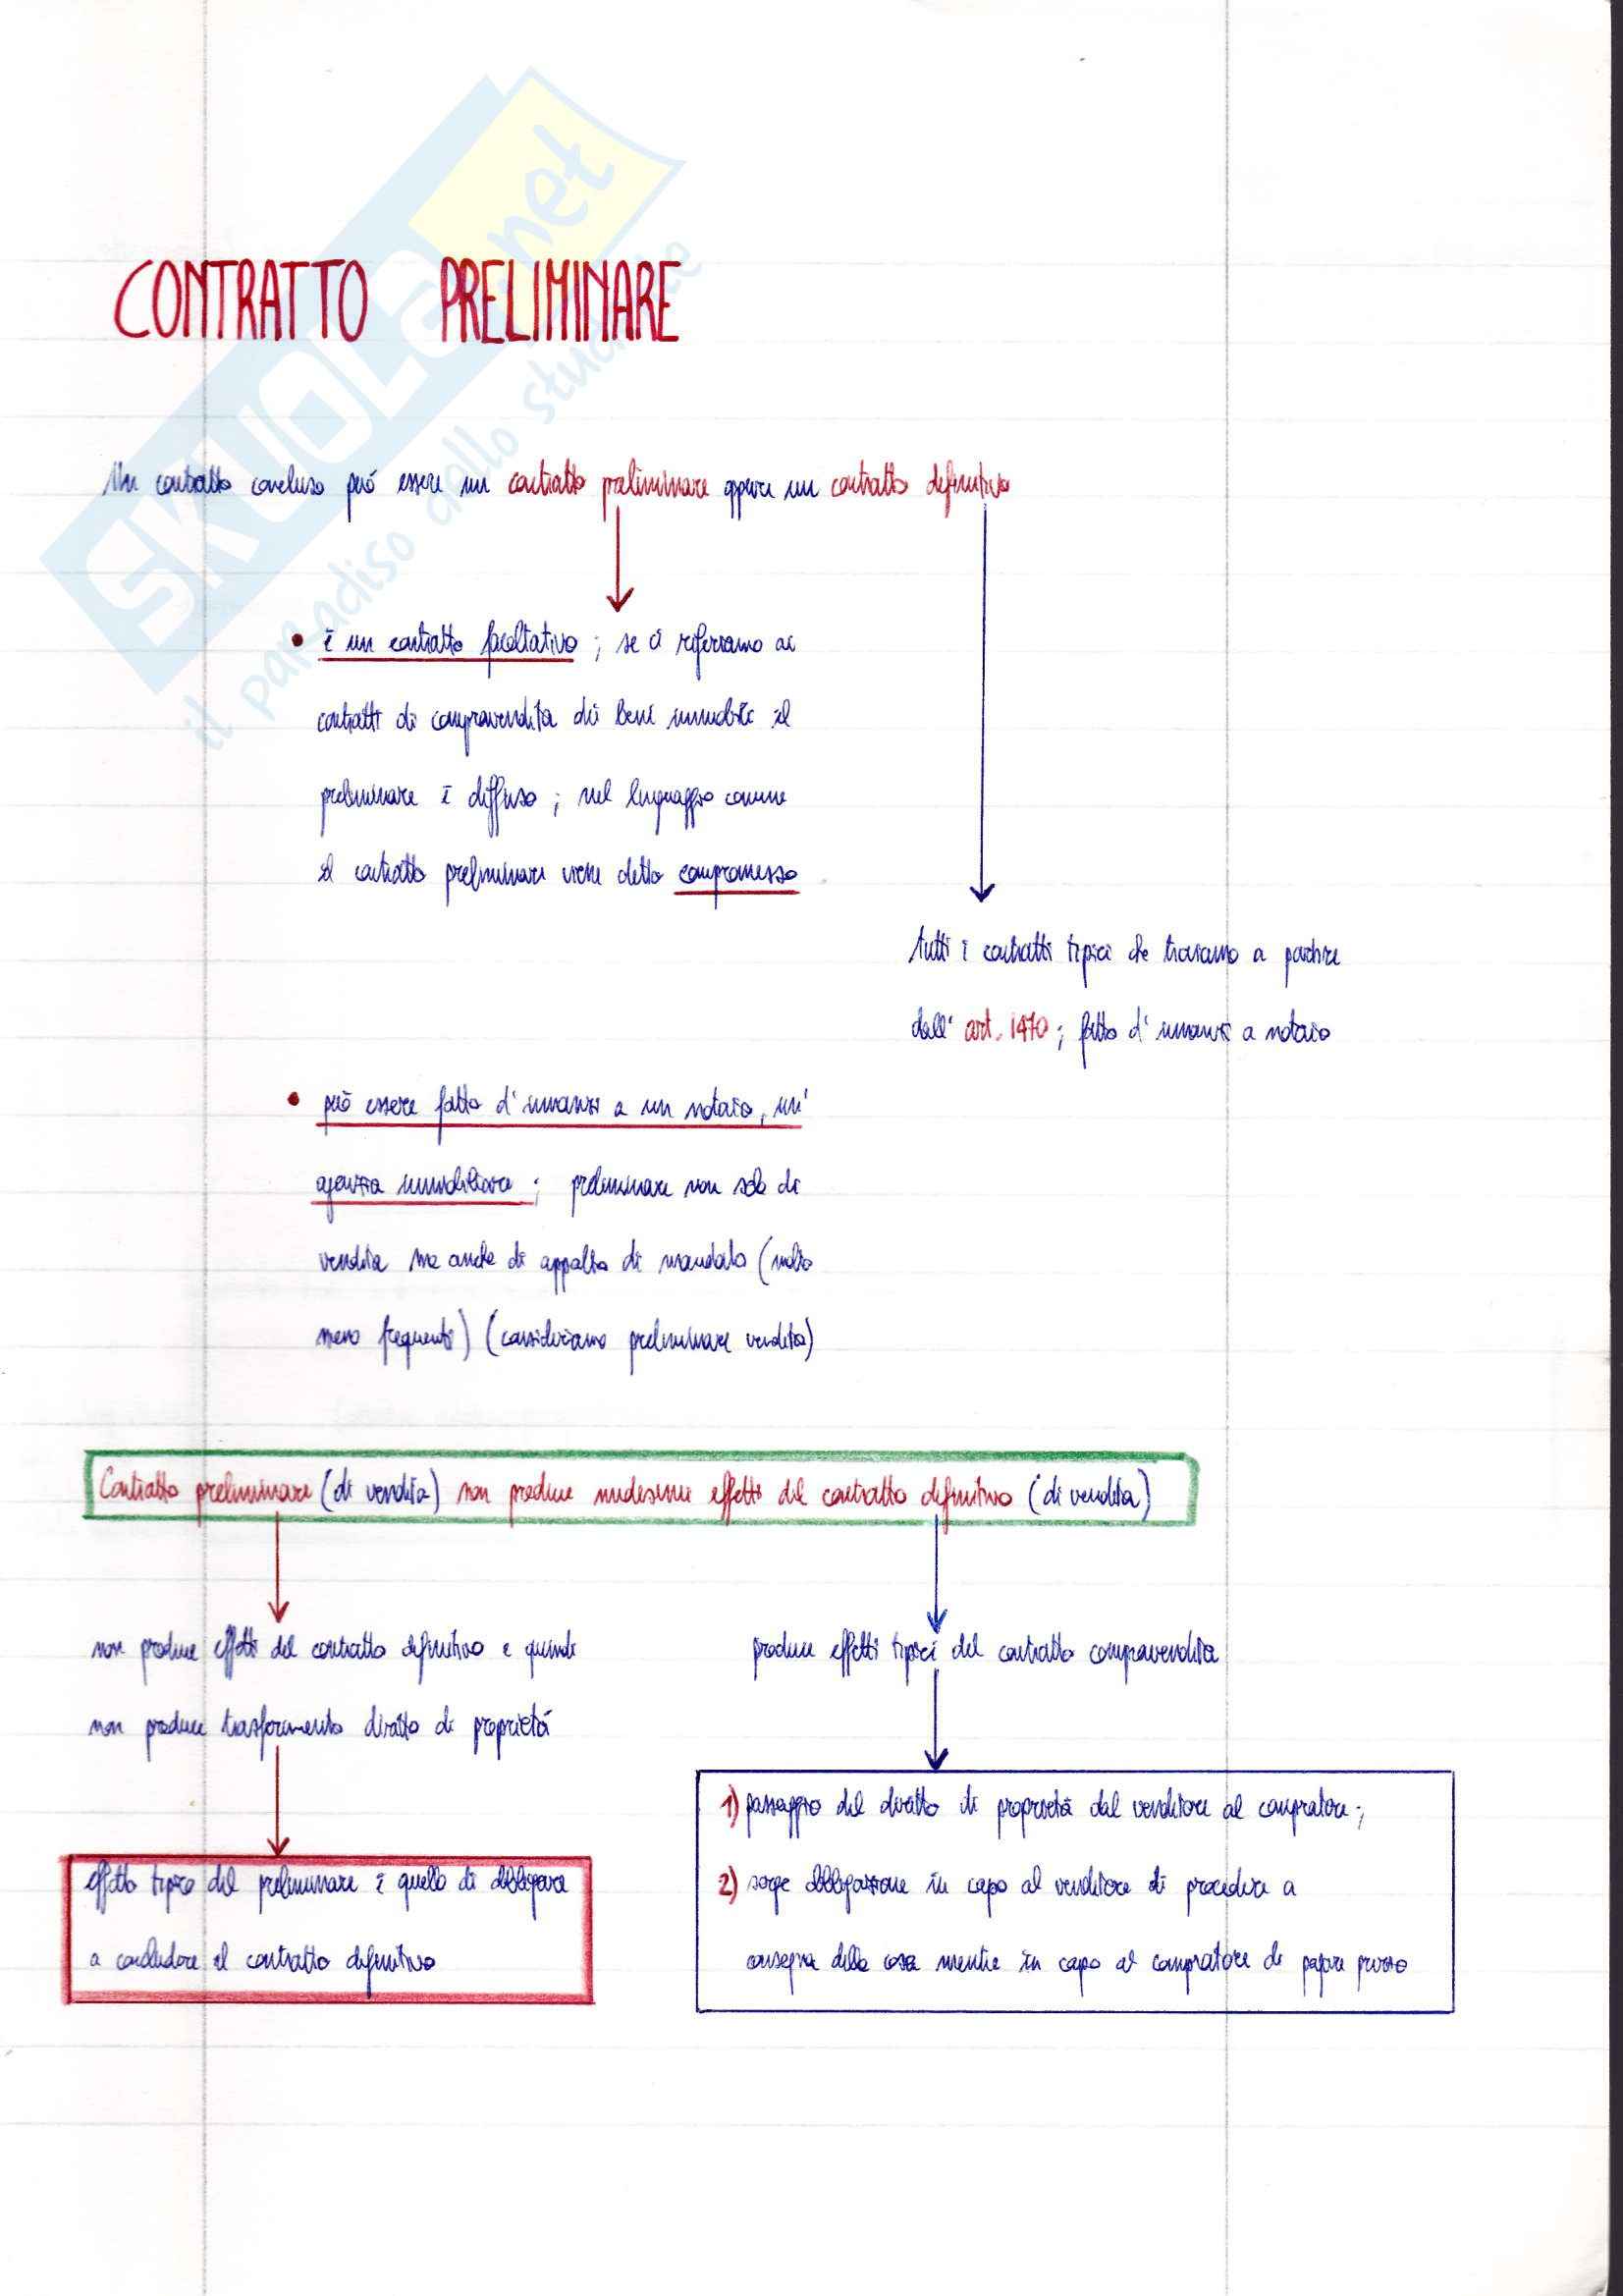 SKUOLA.net
il paradiso dello studente
CONTRATTO PRELIMINARE
Un contratto concluso può essere un contratto preliminare oppure un contratto definitivo
• è un contratto facoltativo ; se ci riferiamo ai
contratti di compravendita dei beni immobili il
preliminare è diffuso ; nel linguaggio comune
il contratto preliminare viene detto compromesso
tutti i contratti tipici che troviamo a partire
dall' art. 1470 ; fatto d'innanzi a notaio
• può essere fatto d'innanzi a un notaio, un'
agenzia immobiliare ; preliminare non solo di
vendita ma anche di appalto di mandato (molto
meno frequenti) (consideriamo preliminare vendita)
Contratto preliminare (di vendita) non produce medesimi effetti del contratto definitivo (di vendita)
non produce effetti del contratto definitivo e quindi
non produce trasferimento diritto di proprietà
produce effetti tipici del contratto compravendita
effetto tipico del preliminare è quello di obbligare
a concludere il contratto definitivo
1) passaggio del diritto di proprietà dal venditore al compratore ;
2) sorge obbligazione in capo al venditore di procedere a
consegna della cosa mentre in capo al compratore di pagare prezzo